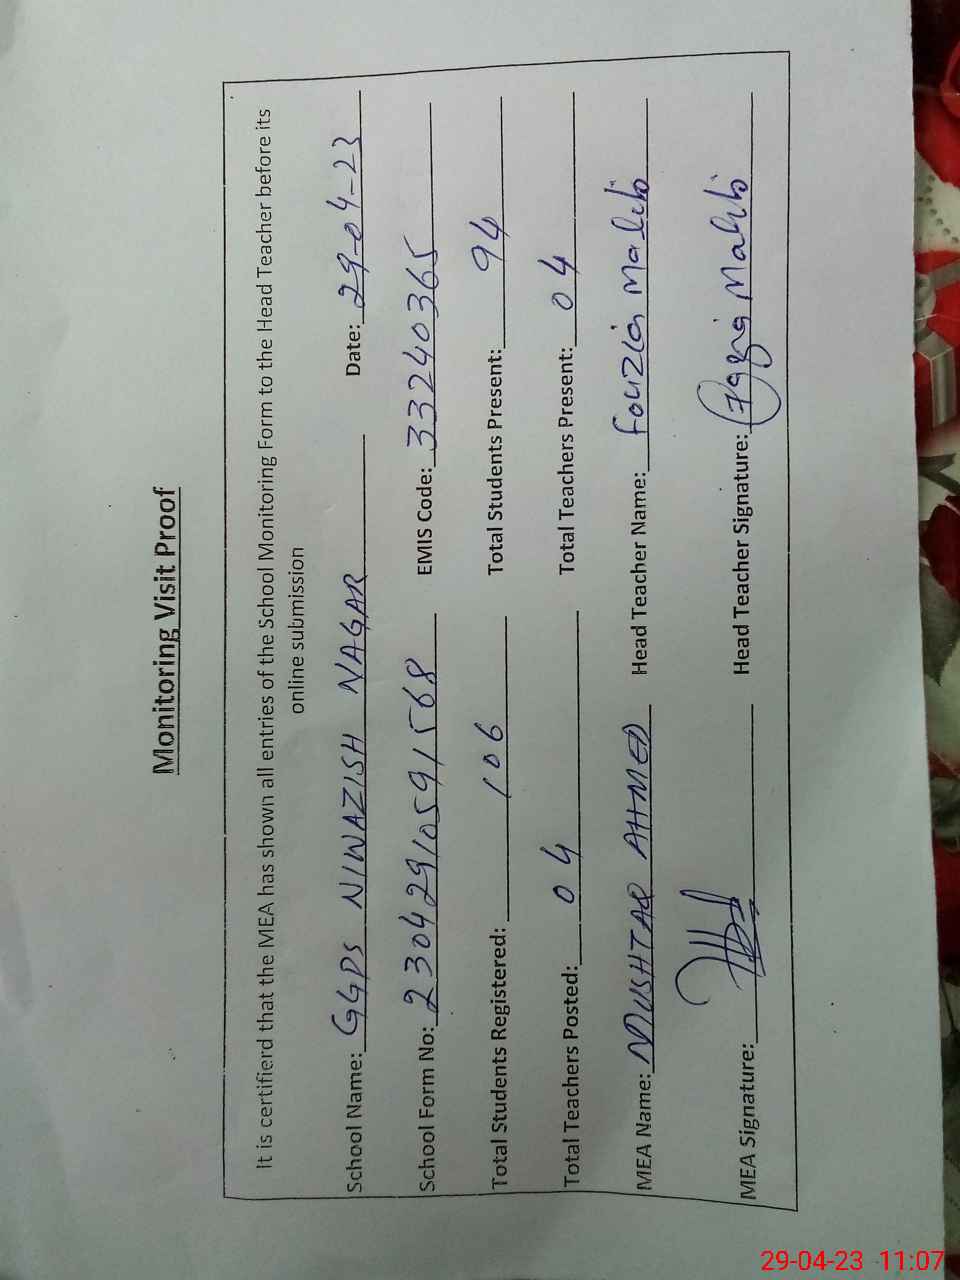 Monitoring Visit Proof
It is certifierd that the MEA has shown all entries of the School Monitoring Form to the Head Teacher before its
online submission
School Name: GGPS NIWAZISH NAGAR Date: 29-04-23
School Form No: 23042910591568 EMIS Code: 33240365
Total Students Registered: 106 Total Students Present: 94
Total Teachers Posted: 04 Total Teachers Present: 04
MEA Name: MUSHTAQ AHMED Head Teacher Name: Fouzia Malik
MEA Signature: Head Teacher Signature: Malik
29-04-23 11:07